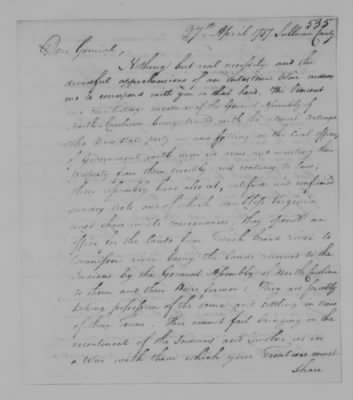 535
27th April 1787 Sullivan County
Dear General,
Nothing but real necessity and the
dreadful apprehensions of an intestine War induces
me to correspond with you on that head. The
and measures of the General Assembly of
North Carolina being with the
the New state party are now falling on the Civil officers
of Government with men in arms and wresting their
property from them forcibly and contrary to Law,
their assembly have also ratified and confirmed
sundry Acts, one of which I see Virginia
must share in its consequences; they opened an
office for the lands from French broad river to
Tennessee river being the lands reserved to the
Indians by the General Assembly of North Carolina
to them and their Heirs forever: They are forcibly
taking possession of the same and settling in view
of their Towns. This cannot fail bringing on the
resentment of the Indians and involve us in
a War with them which your Frontiers must
Share